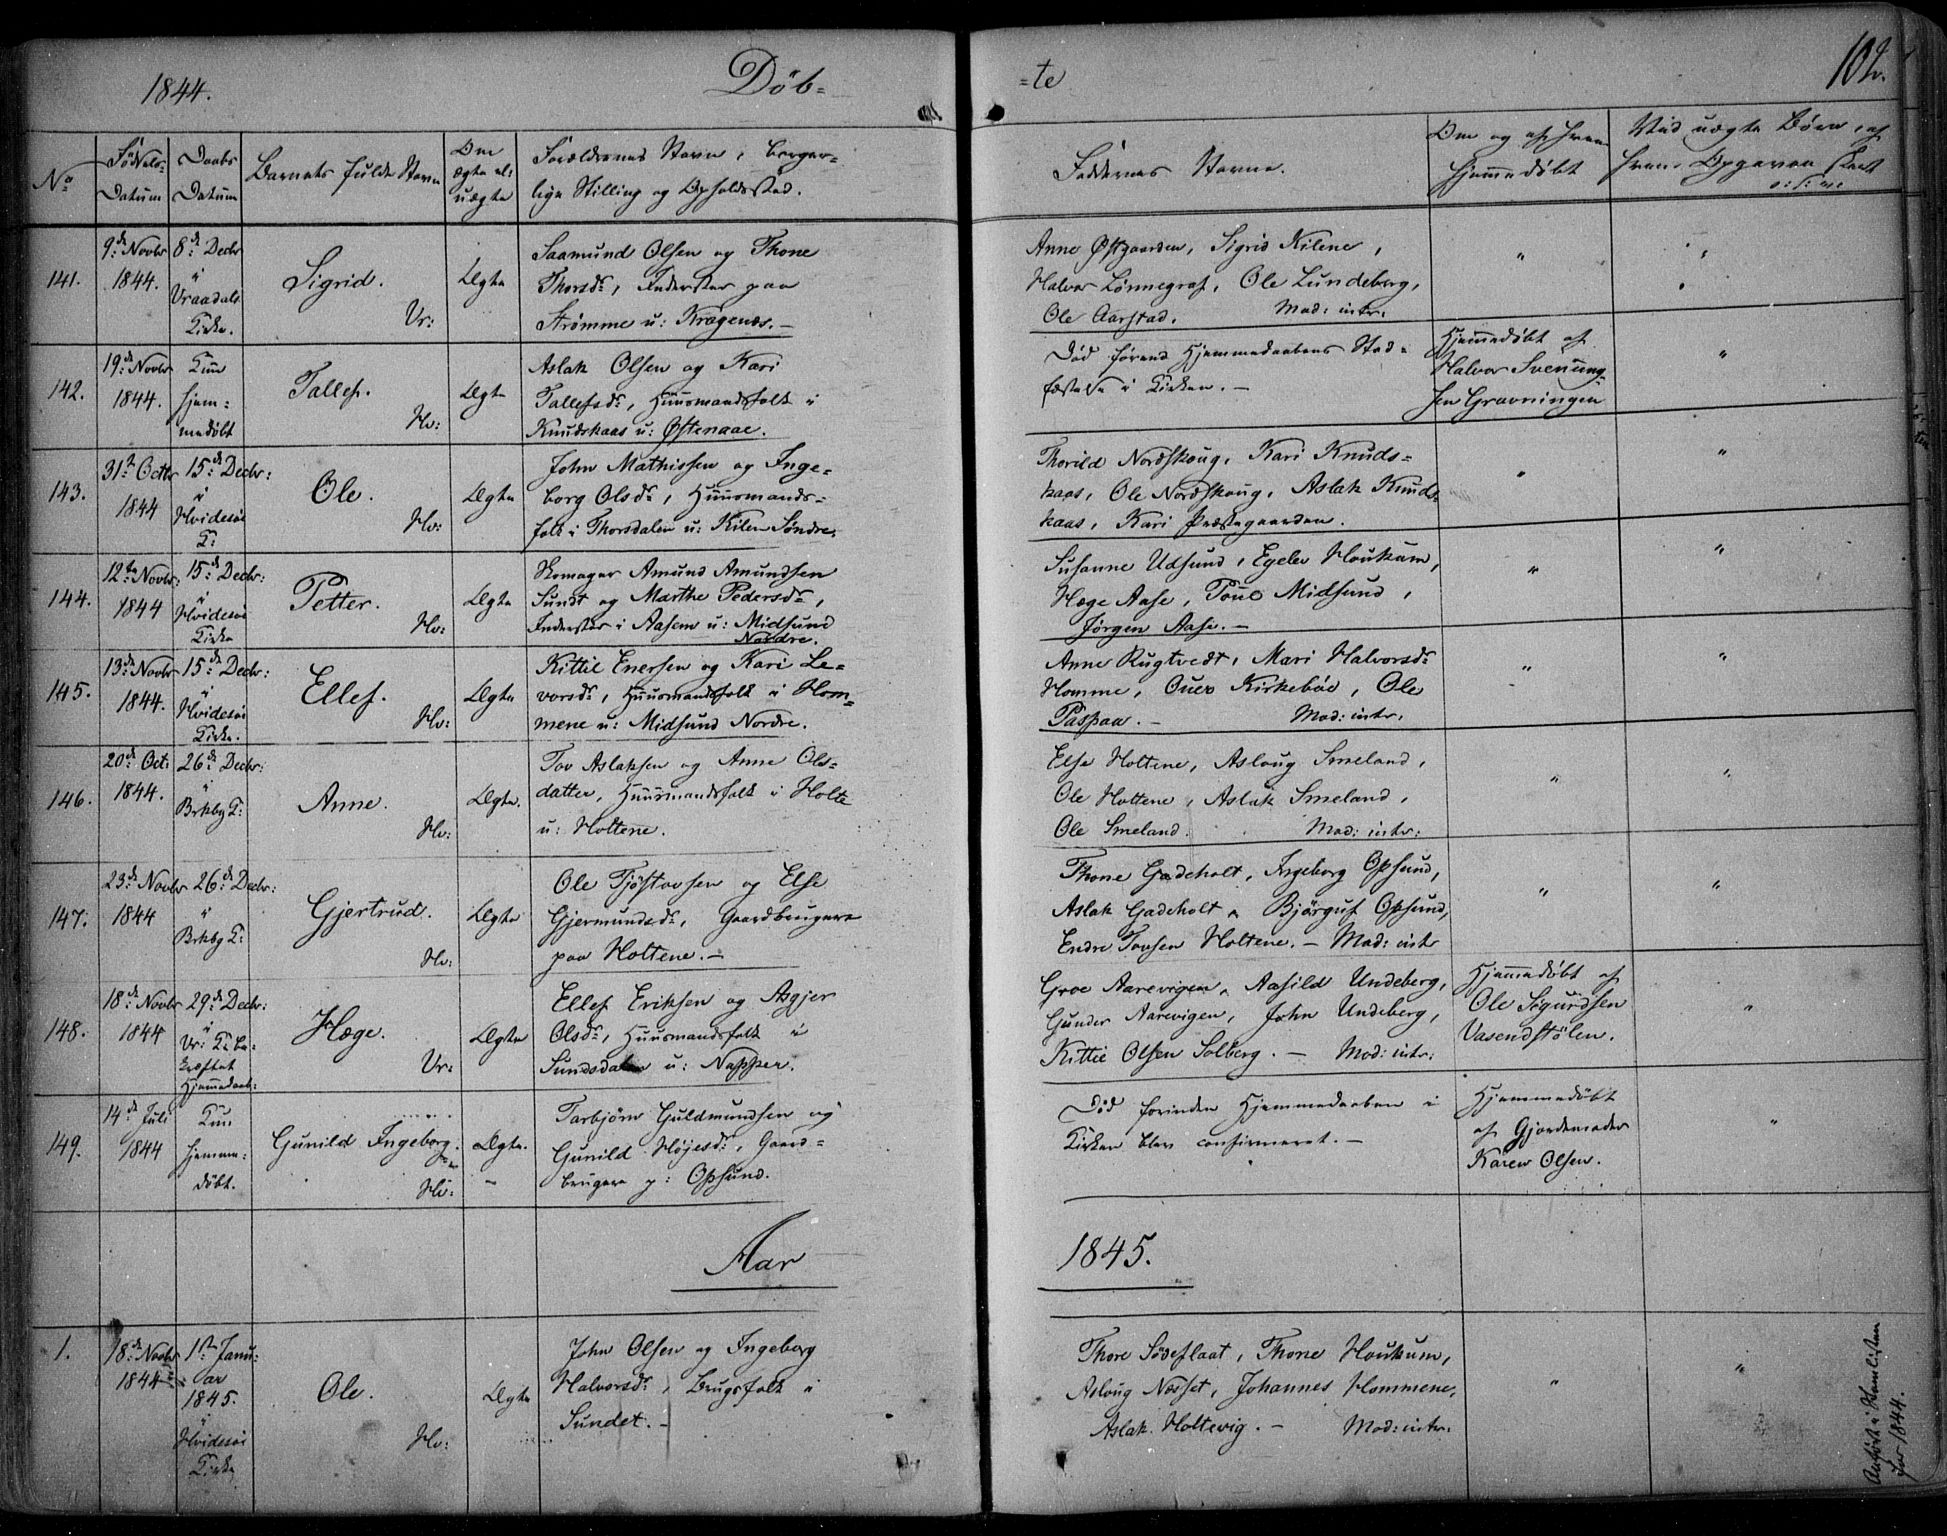 1844.
Döb-
-te
102.
No
Fødsels-
Datum
Daabs
Datum
Barnets fulde Navn
Om
ægte el:
uægte
Forældrenes Navn, borger-
lige Stilling og Opholdssted.
Faddernes Navne.
Om og af hvem
hjemmedøbt
Ved uægte Børn, af
hvem Opgaven skeet
o: s: v:
141.
9:de Novbr
1844.
8:de Decbr
i
Vraadals
Kirke.
Sigrid.
Vr:
Ægte
Saamund Olsen og Thone
Thorsdr, Inderster paa
Strømme u: Kragenæs.-
Anne Østgaarden, Sigrid Kilene,
Halvor Lönnegraf, Ole Lundeberg,
Ole Aarstad. Mod: intr:
"
142.
19:de Novbr
1844.
Kun
hjem=
medøbt
Tallef.
Hv:
Ægte
Aslak Olsen og Kari
Tallefsdr, Huusmandsfolk i
Knudskaas u: Østenaae.
Død førend Hjemmedaabens Stad=
fæstelse i Kirken.-
Hjemmedøbt af
Halvor Svenung-
sen Gravningen
"
143.
31te Octbr
1844
15:de Decbr:
i
Hvidesöi
K:
Ole.
Hv:
Ægte
John Mathissen og Inge=
borg Olsdr, Huusmands=
folk i Thorsdalen u: Kilen Søndre.
Thorild Nordskoug, Kari Knuds=
kaas, Ole Nordskoug, Aslak Knuds-
kaas, Kari Præstegaarden.
"
"
144.
12te Novbr:
1844
15:de Decbr:
i
Hvidesöi
Kirke
Petter.
Hv:
Ægte
Skomager Amund Amundsen
Sundt og Marthe Pedersdr,
Inderster i Aasem u: Midsund
Nordre.
Susanne Udsund, Egelev Houkum,
Hæge Aase, Tone Midsund,
Jörgen Aase.-
"
"
145.
13:de Novbr
1844.
15:de Decbr:
i
Hvidesöi
Kirke.
Ellef.
Hv:
Ægte
Kittil Enersen og Kari Le=
vorsdr, Huusmandsfolk i Hom=
mene u: Midsund Nordre.
Anne Rugtvedt, Mari Halvorsdr
Homme, Ouer Kirkeböe, Ole
Paspaa.- Mod: intr.
"
"
146.
20:de Oct:
1844.
26:de Decbr:
i
Brkbg K:
Anne.
Hv:
Ægte.
Tov Aslaksen og Anne Ols-
datter, Huusmandsfolk i Holte
u: Holtene.
Else Holtene, Asloug Smeland,
Ole Holtene, Aslak Smeland,
Ole Smeland. Mod: intr:
"
"
147.
23:de Novbr
1844
26:de Decbr:
i
Brkbg K:
Gjertrud.
Hv:
Ægte
Ole Tjöstovsen og Else
Gjermundsdr, Gaardbrugere
paa Holtene.-
Thone Gadeholt, Ingeborg Opsund,
Aslak Gadeholt, Björguf Opsund,
Endre Tovsen Holtene.- Mod: intr
"
"
148.
18:de Novbr
1844
29:de Decbr:
i
Vr: K: be-
kræftet
Hjemmedaab:
Hæge.
Vr:
Ægte
Ellef Eriksen og Asgjer
Olsdr, Huusmandsfolk i
Sundsdalen u: Napper.
Groe Aarevigen, Aasild Undeberg,
Gunder Aarevigen, John Undeberg,
Kittil Olsen Solberg.- Mod: intr:
Hjemmedøbt af
Ole Sigurdsen
Vasendstölen.
"
149.
14:de Juli
1844
Kun
hjemme=
döbt.
Gunild Ingeborg.
Hv:
Ægte.
Tarbjörn Guldmundsen og
Gunild Höjesdr, Gaard=
brugere p: Opsund.
Död forinden Hjemmedaaben i
Kirken blev confirmeret.-
Hjemmedöbt
af Gjordemoder
Karen Olsen.
"
Aar
1845.
1.
18:de Novbr
1844
1ste Janu:
ar
1845.
i
Hvidesöi
Kirke
Ole.
Hv:
Ægte
John Olsen og Ingeborg
Halvorsdr, Brugsfolk i
Sundet.-
Thore Södeflaat, Thone Houkum,
Asloug Næsset, Johannes Hommene,
Aslak Holtevig.- Mod: intr.
"
"
Anført i Hamlisten
for 1844.